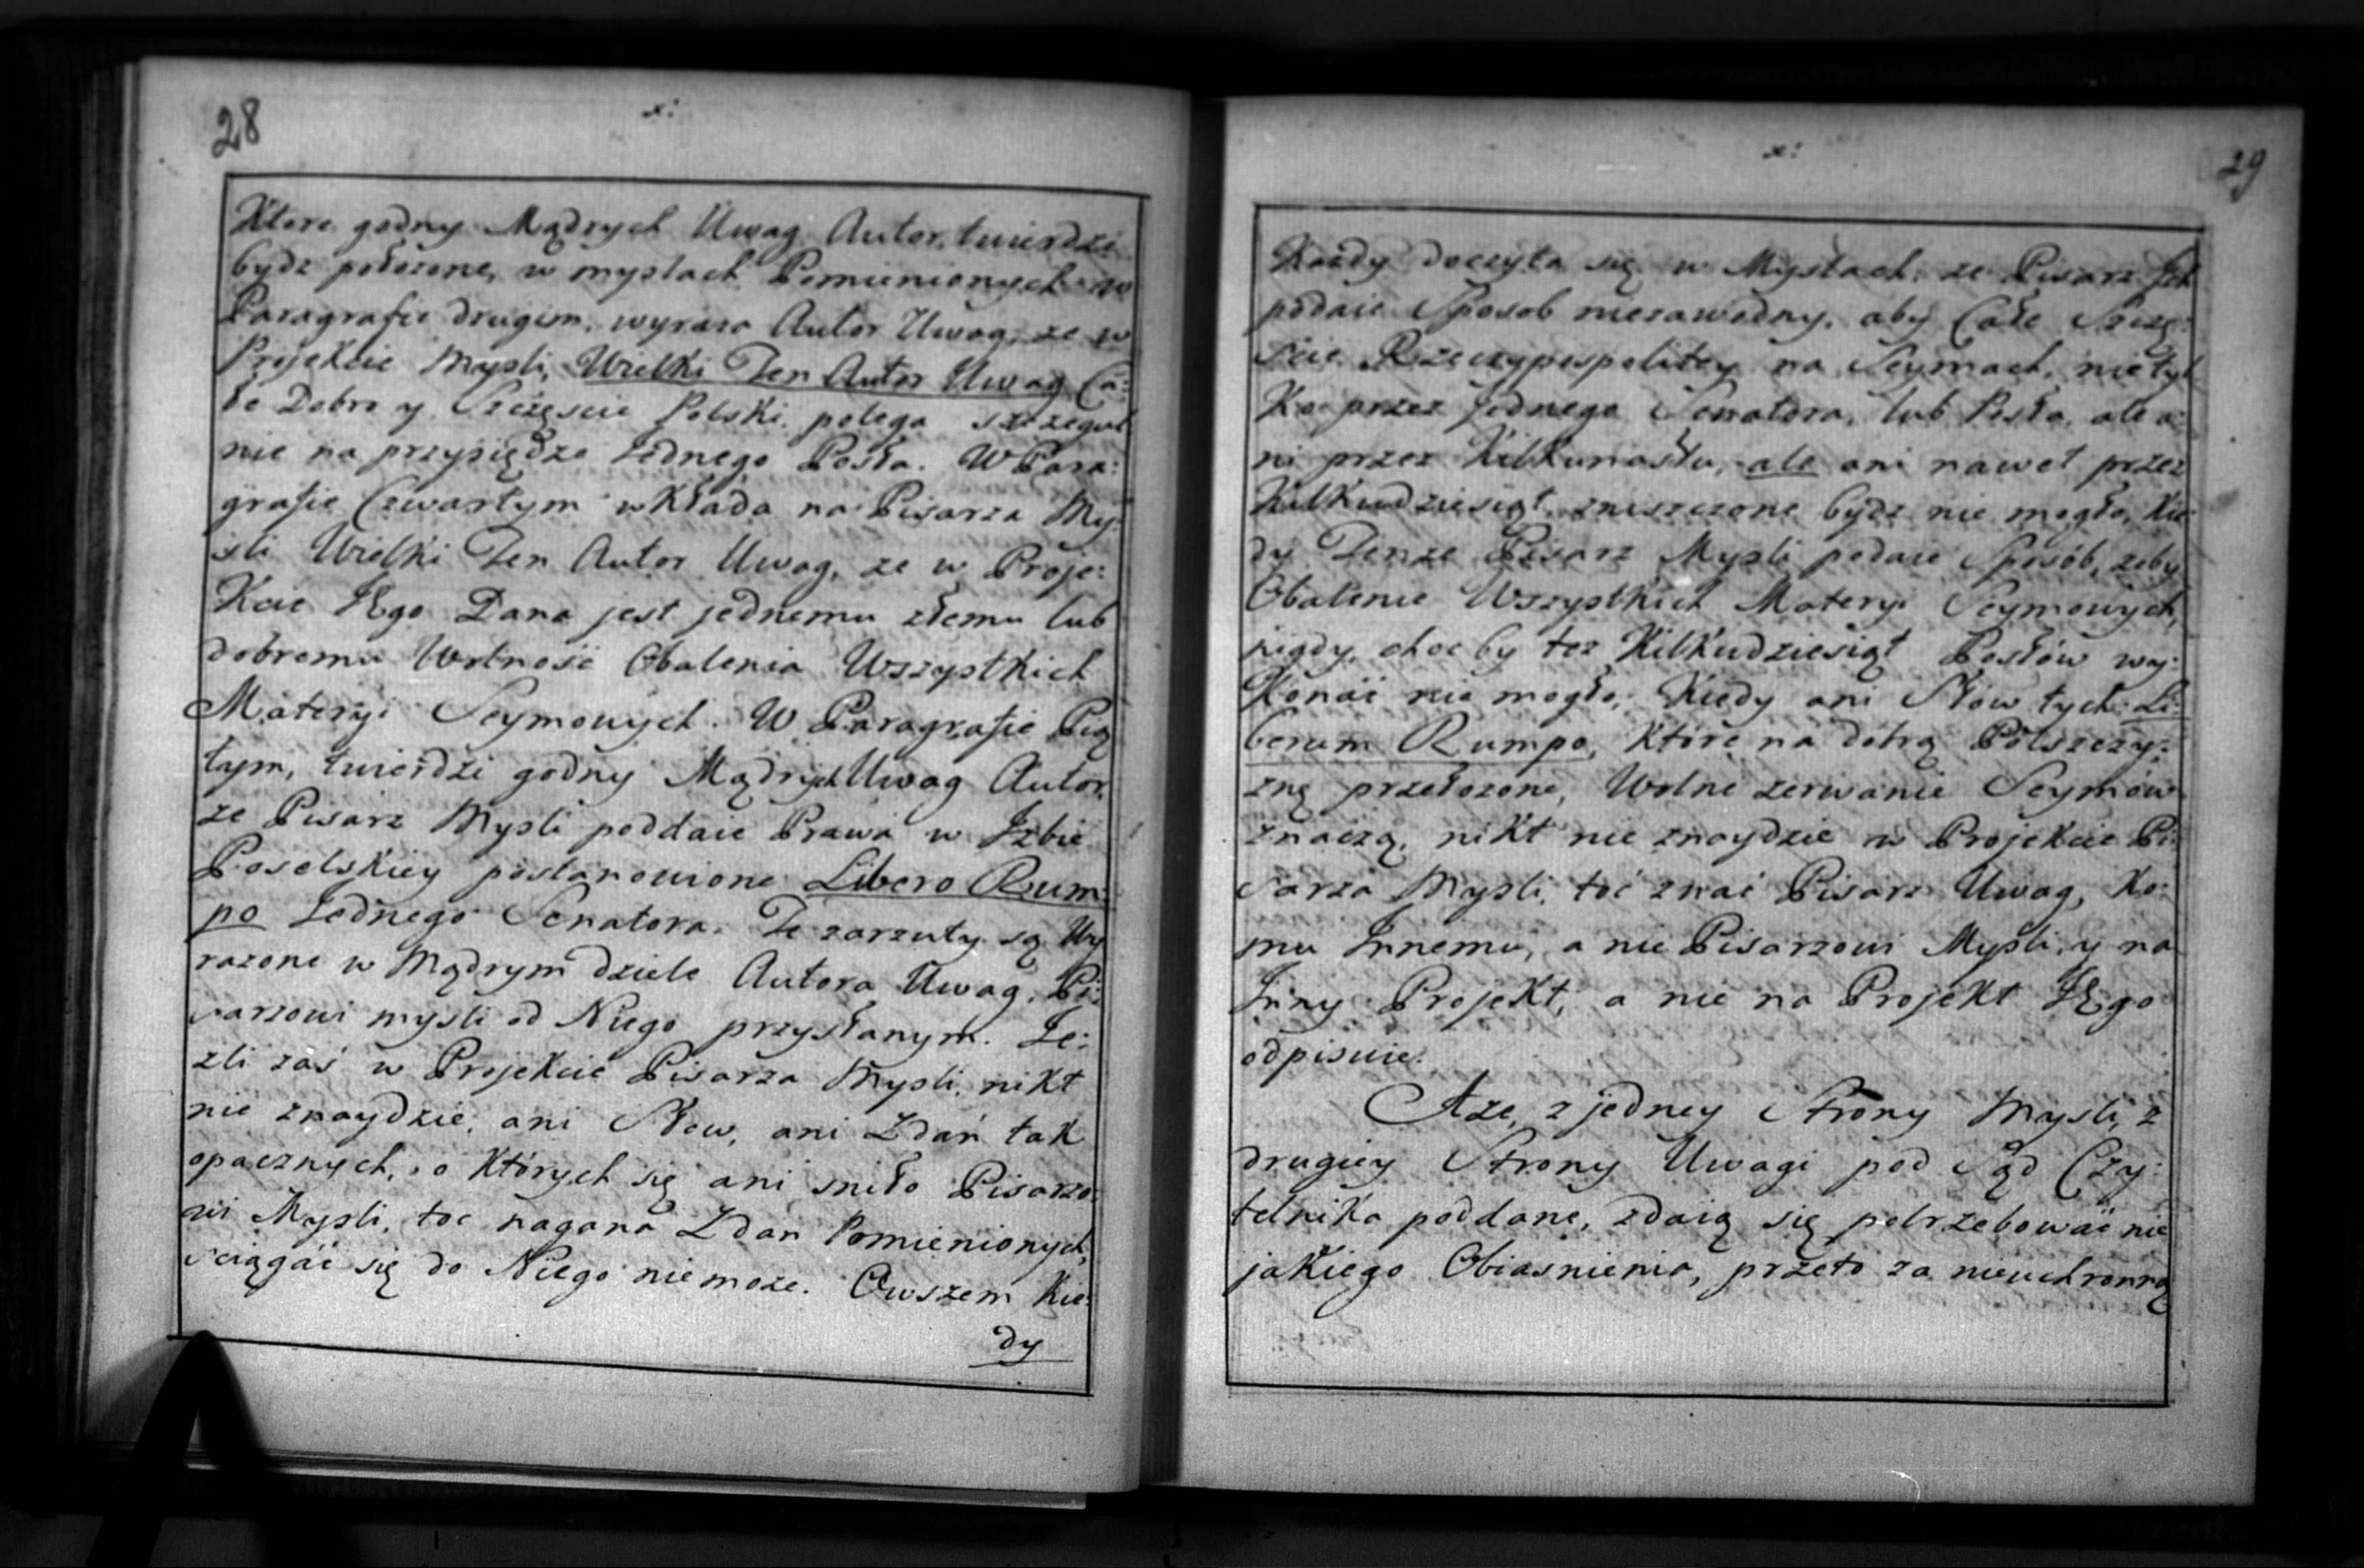 28
x:
Ktore godny Mądrych Uwag Autor, twierdzi
bydz położone, w myslach Pomienionych w
Paragrafie drugim, wyraza Autor Uwag, ze w
Projekcie Mysli, Wielki Ten Autor Uwag Ca:
łe Dobro y Szczęscie Polski polega szczegul
nie na przysiędze Jednego Posła. W Para:
grafie Czwartym wkłada na Pisarza My:
sli Wielki Ten Autor Uwag, ze w Proje:
Kcie JEgo Dana jest jednemu złemu lub
dobremu Wolność Obalenia Wszystkich
Materyi Seymowych. W Paragrafie Pią
tym, twierdzi godny Mądrych Uwag Autor,
ze Pisarz Mysli poddaie Prawa w Izbie
Poselskiey postanowione Libero Rum:
po Jednego Senatora. Te zarzuty są Wy
razone w Mądrym dziele Autora Uwag, Pi:
sarzowi mysli od Niego przysłanym. Je:
zli zaś w Projekcie Pisarza Mysli, nikt
nie znaydzie, ani Słow, ani Zdań tak
opacznych, o Których się ani sniło Pisarzo:
wi Mysli, toc nagana Zdan Pomienionych,
sciągać się do Niego niemoze. Owszem Kie:
dy
x:
29
Kazdy doczyta się w Myslach, ze Pisarz Ich
podaie Sposob niezawodny, aby Całe Szczę:
scie Rzeczypospolitey na Seymach, nietyl
Ko przez Jednego Senatora, lub Posła, ale a:
ni przez Kilkunastu, ale ani nawet przez
Kilkudziesiąt, zniszczone bydz nie mogło, Kie
dy Tenze Pisarz Mysli podaie Sposób, zeby
Obalenie Wszystkich Materyi Seymowych,
nigdy, choc by tez Kilkudziesiąt Posłów wy:
Konać nie mogło; Kiedy ani Słow tych Li:
berum Rumpo, Które na dobrą Polszczy:
znę przełozone, Wolne zerwanie Seymów
znaczą, nikt nie znaydzie w Projekcie Pi:
sarza Mysli, toć znać Pisarz Uwag, Ko:
mu Innemu, a nie Pisarzowi Mysli, y na
Inny Projekt, a nie na Projekt JEgo
odpisuie.
Aze, z jedney Strony Mysli, z
drugiey Strony Uwagi pod Sąd Czy:
telnika poddane, zdaią się potrzebować nie
jakiego Obiasnienia, przeto za nieuchronną